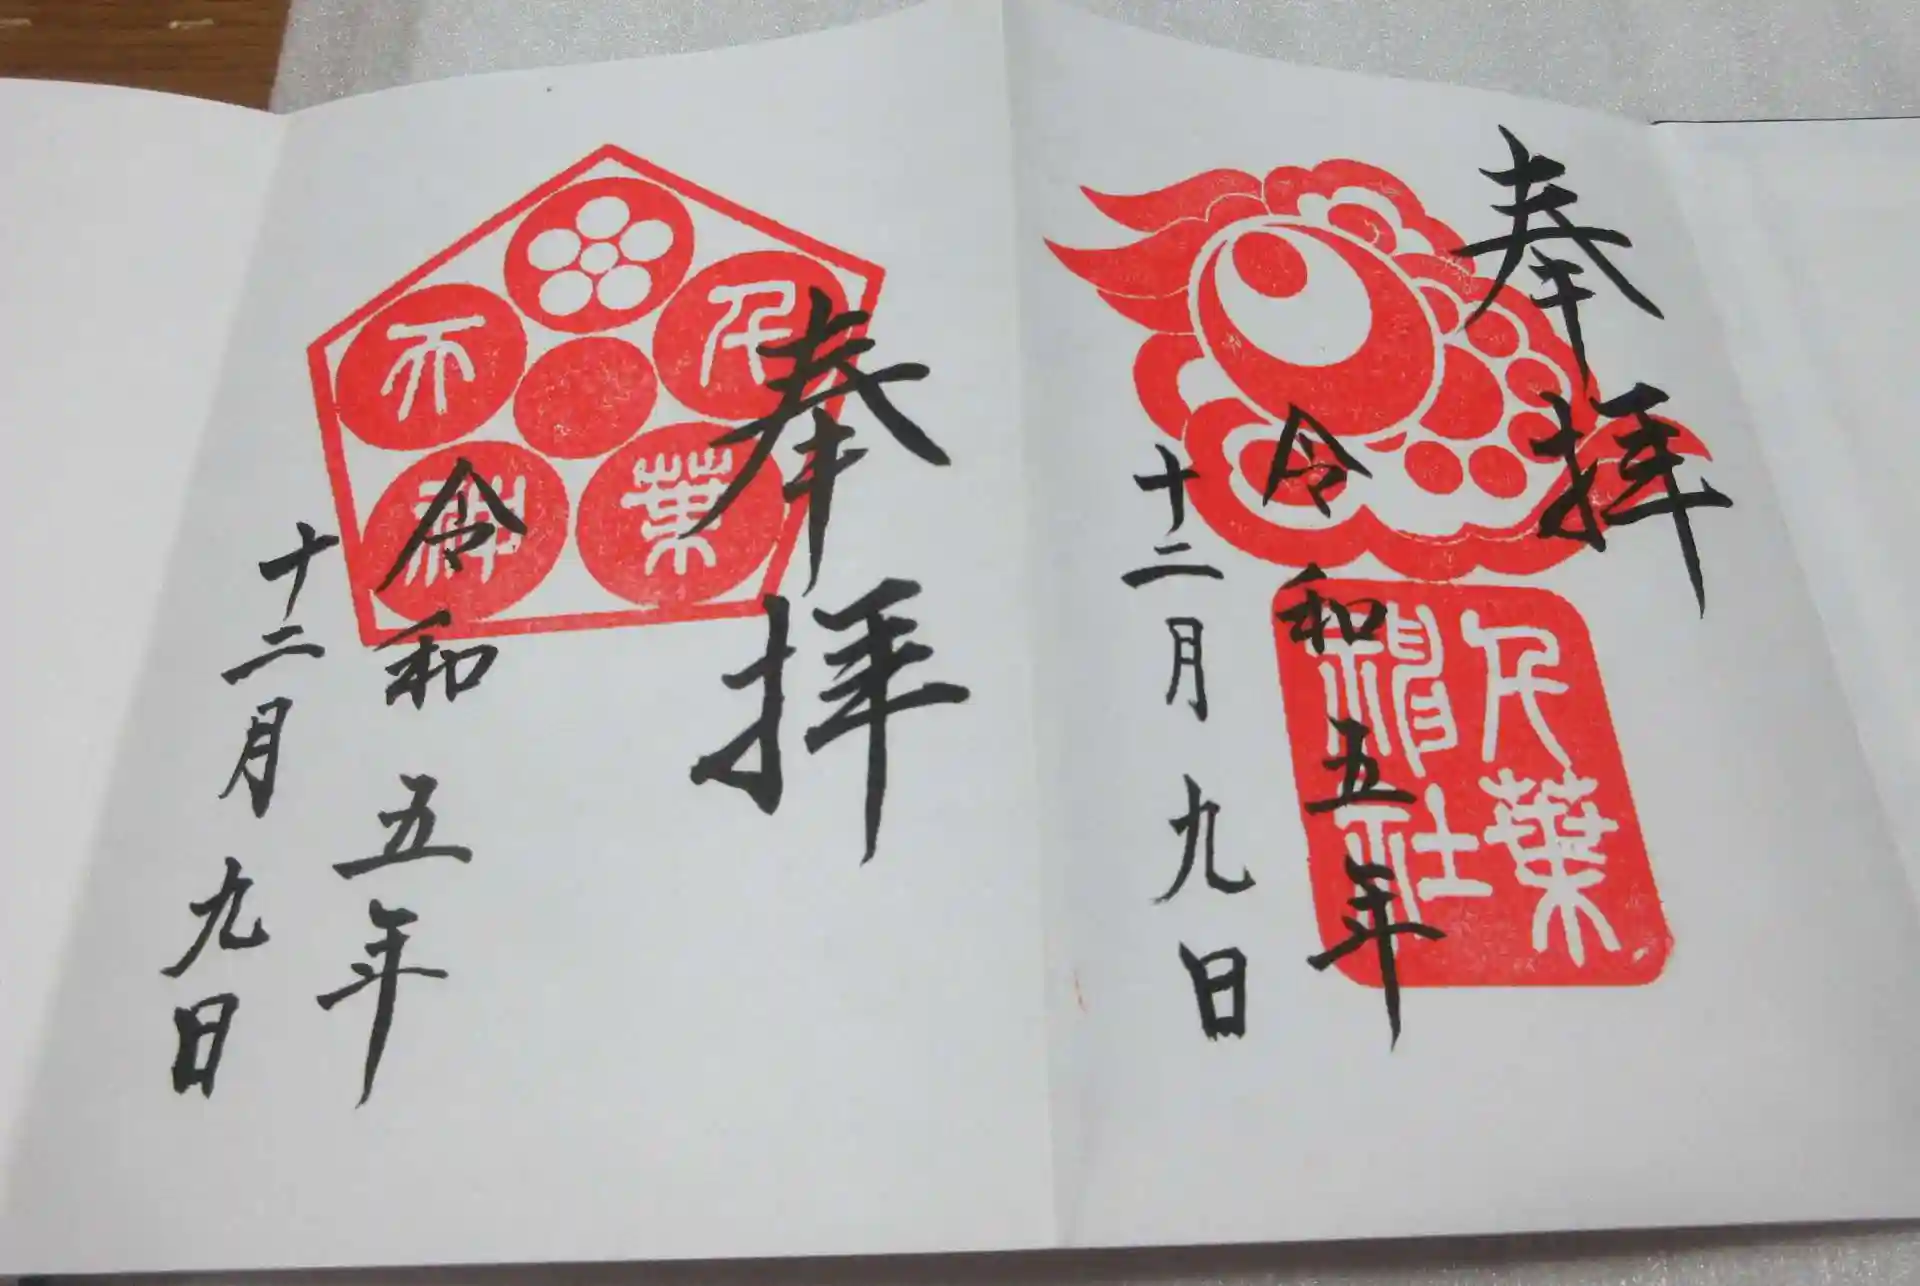 奉拝
令和五年
十二月九日
千葉
神社
奉拝
千葉
天神
令和五年
十二月九日